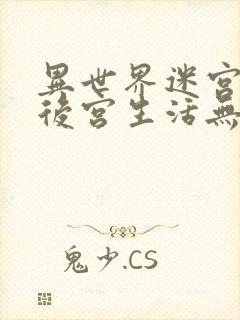 異世界迷宮
後宮生活無
鬼少.CS